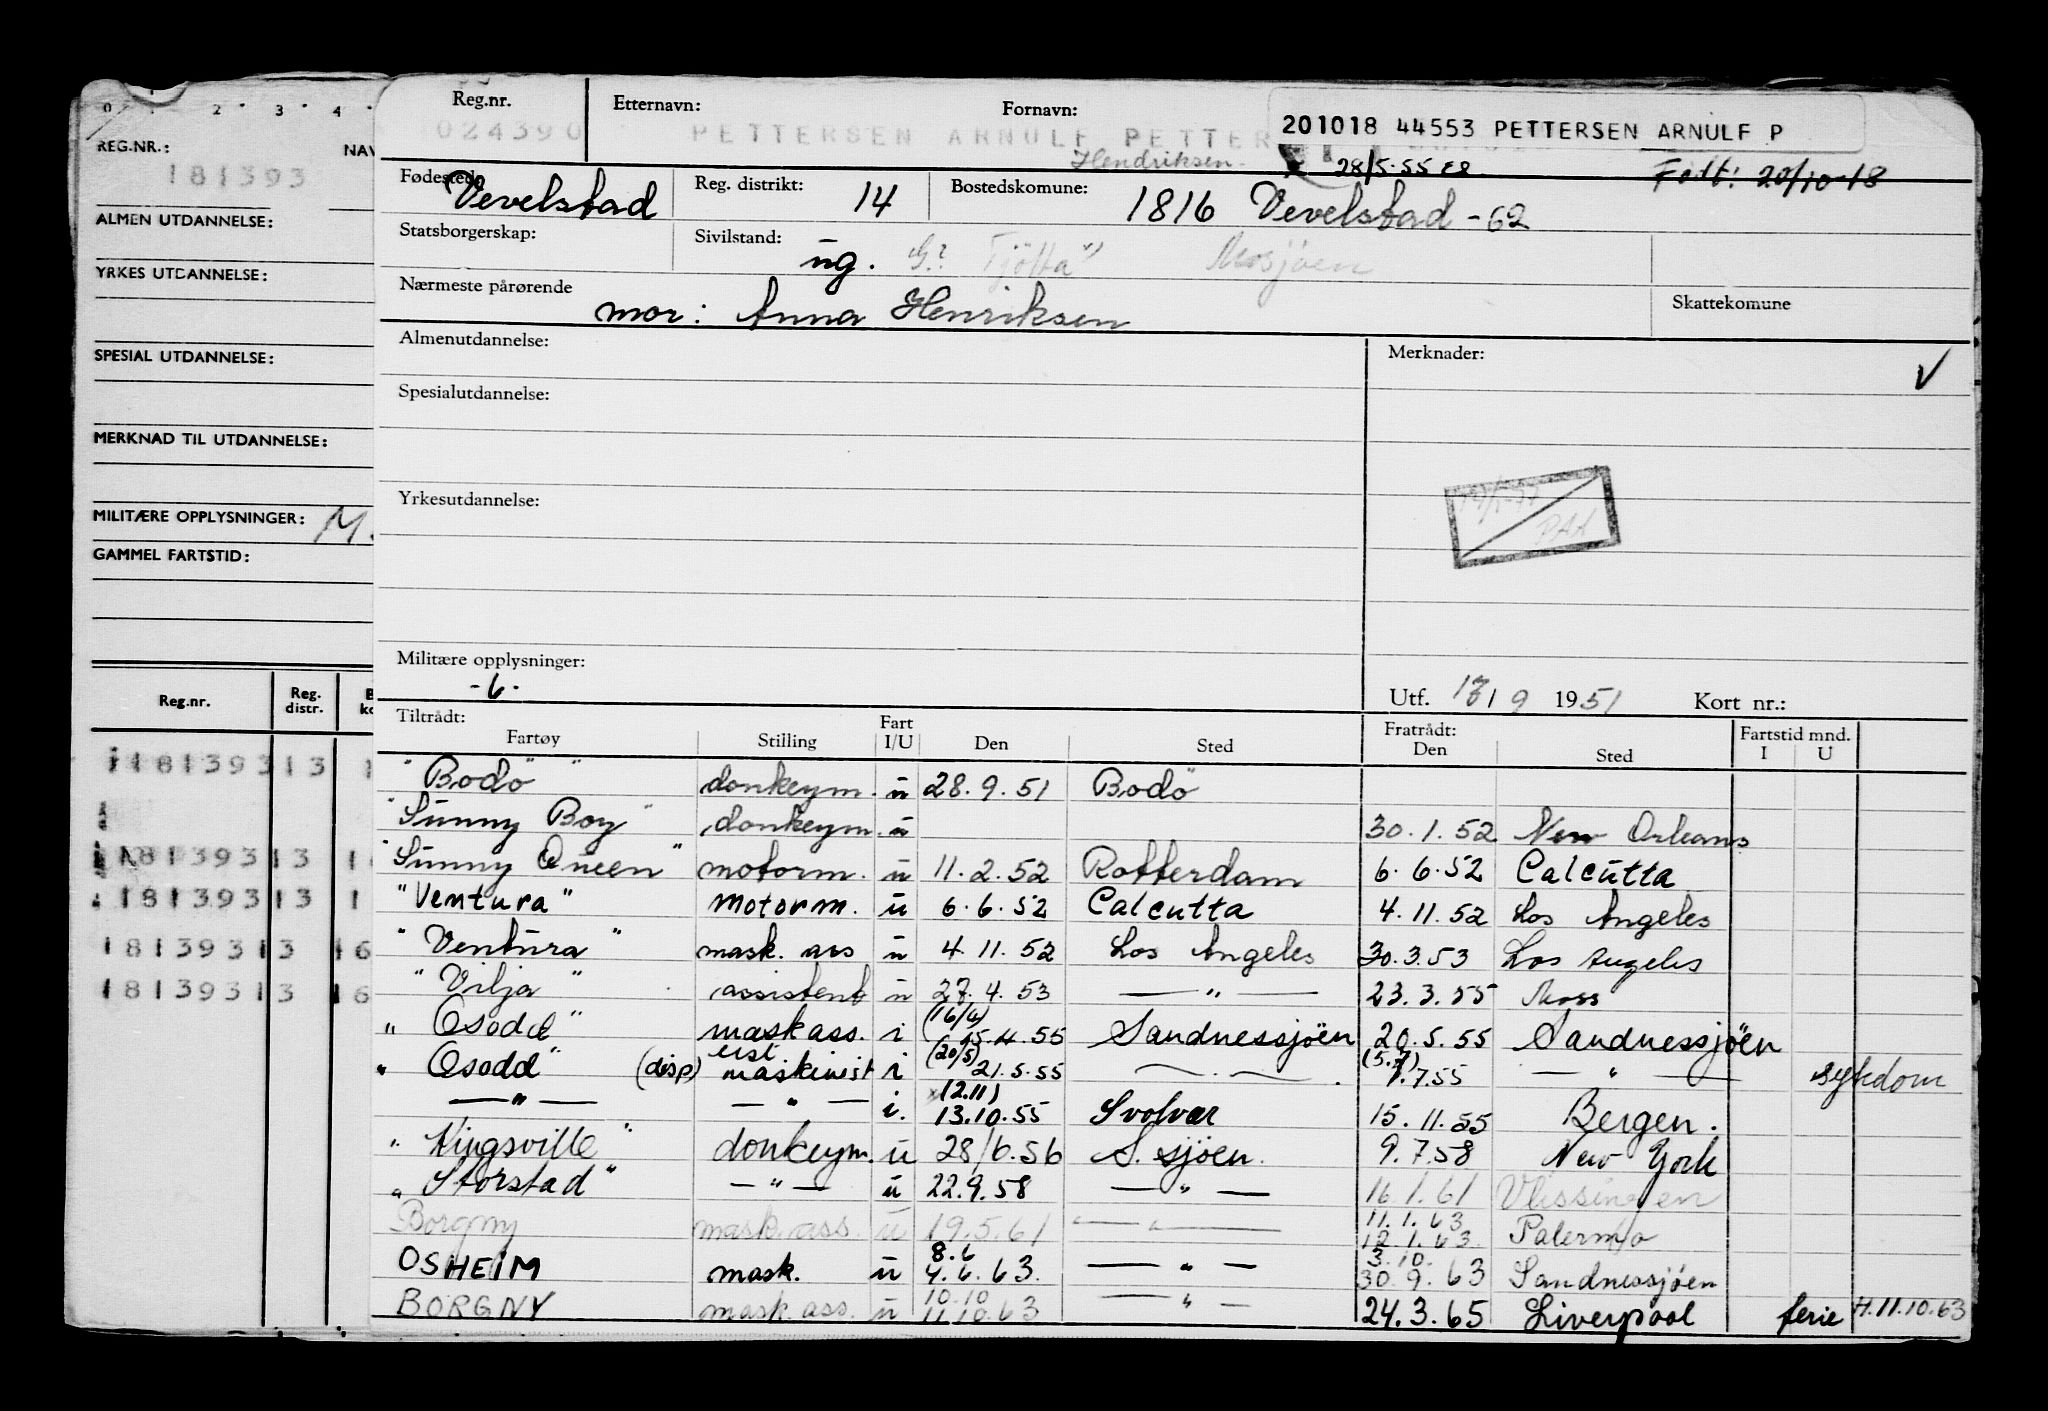 0 1 2 · 3 · 4 ·
REG.NR.: NAV
181393
ALMEN UTDANNELSE:
YRKES UTDANNELSE:
SPESIAL UTDANNELSE:
MERKNAD TIL UTDANNELSE:
MILITÆRE OPPLYSNINGER: M.
GAMMEL FARTSTID:
Reg.nr. Reg. distr.
18139313 1
18139313 1
18139313 1
18139313 16
18139313 16
Reg.nr. Etternavn: Fornavn:
024390 PETTERSEN ARNULF PETTER
201018 44553 PETTERSEN ARNULF P
Hendriksen. 28/5-55 Født: 20/10-18
Fødested: Vevelstad Reg. distrikt: 14 Bostedskomune: 1816 Vevelstad - 62
Statsborgerskap: Sivilstand: ug. G? "Tjötta" Mosjöen
Nærmeste pårørende mor: Anna Henriksen Skattekomune
Almenutdannelse: Merknader: ✓
Spesialutdannelse:
Yrkesutdannelse:
Militære opplysninger:
-6-
Utf. 9 1951 Kort nr.:
Tiltrådt: Fratrådt: Fartstid mnd.
Fartøy Stilling Fart I/U Den Sted Den Sted I U
"Bodö" donkeym. u 28.9.51 Bodö
"Sunny Boy" donkeym. u 30.1.52 New Orleans
"Sunny Queen" motorm. u 11.2.52 Rotterdam 6.6.52 Calcutta
"Ventura" motorm. u 6.6.52 Calcutta 4.11.52 Los Angeles
"Ventura" mask. ass u 4.11.52 Los Angeles 30.3.53 Los Angeles
"Vilja" assistent u 27.4.53 — " — 23.3.55 Moss
"Osodd" maskass. i (16/4) 15.4.55 Sandnessjöen 20.5.55 Sandnessjöen
"Osodd" (disp) maskinist i (20/5) 21.5.55 — . — . (5.7) 7.7.55 — " — sykdom
— " — — " — i. (12.11) 13.10.55 Svolvær 15.11.55 Bergen.
"Kingsville" donkeym. u 28/6.56 S.sjöen. 9.7.58 New York
"Storstad" — " — u 22.9.58 — " — 16.1.61 Vlissingen
Borgny mask. ass. u 19.5.61 — " — 11.1.63 12.1.63 Palermo
OSHEIM mask. u 8.6 4.6.63. — " — 3.10. 30.9.63 Sandnessjöen
BORGNY mask. ass. u 10.10 11.10.63 — " — 24.3.65 Liverpool ferie H.11.10.63